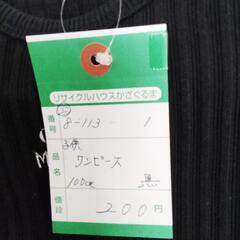 リサイクルハウスかざぐるま
8-113- 1
品名
子供
ワンピース
100cm 黒
値段 200円